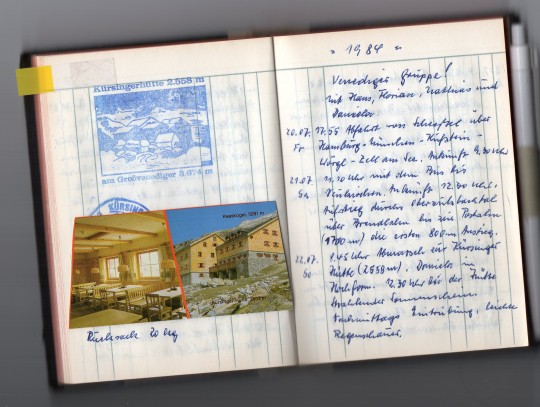 Kürsingerhütte 2.558 m
am Großvenediger 3.674 m
KÜRSING
Keeskogel, 3291 m
Rucksack 20 kg
" 1984 "
Venediger Gruppe!
mit Hans, Florian, Matthias und
Daniela
20.07. 17.55 Abfahrt von über
Fr Hamburg-München-Kufstein-
Wörgl-Zell am See. Ankunft 9.30 Uhr
21.07. 11.10 Uhr mit dem Bus bis
Sa Neukirchen Ankunft 12.00 Uhr.
Aufstieg durchs Obersulzbachtal
über bis zur Postalm
(1700 m) die ersten 800 m Anstieg.
22.07. 9.45 Uhr Abmarsch zur Kürsinger
So Hütte (2558 m). Daniela in
Hochform. 12.30 Uhr bei der Hütte
Strahlender Sonnenschein.
Nachmittags Eintrübung, leichte
Regenschauer.